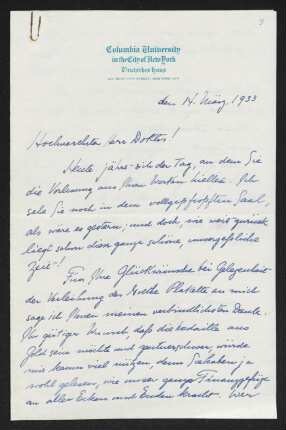 Columbia University
in the City of New York
Deutsches Haus
den 14. März 1933
Hochverehrter Herr Doktor!
Heute jährt sich der Tag, an dem Sie
die Vorlesung aus Ihren Werken hielten. Ich
sehe Sie noch in dem vollgepfropften Saal,
als wäre es gestern; und doch, wie weit zurück
liegt schon diese ganze schöne, unvergessliche
Zeit!
Für Ihre Glückwünsche bei Gelegenheit
der Verleihung der Goethe Plakette an mich
sage ich Ihnen meinen verbindlichsten Dank.
Ihr gütiger Wunsch, daß die Medaille aus
Gold sein möchte und
mir kaum viel nützen, denn Sie haben ja
wohl gelesen, wie unser ganzes Finanzgefüge
an allen Ecken und Enden kracht. Wer